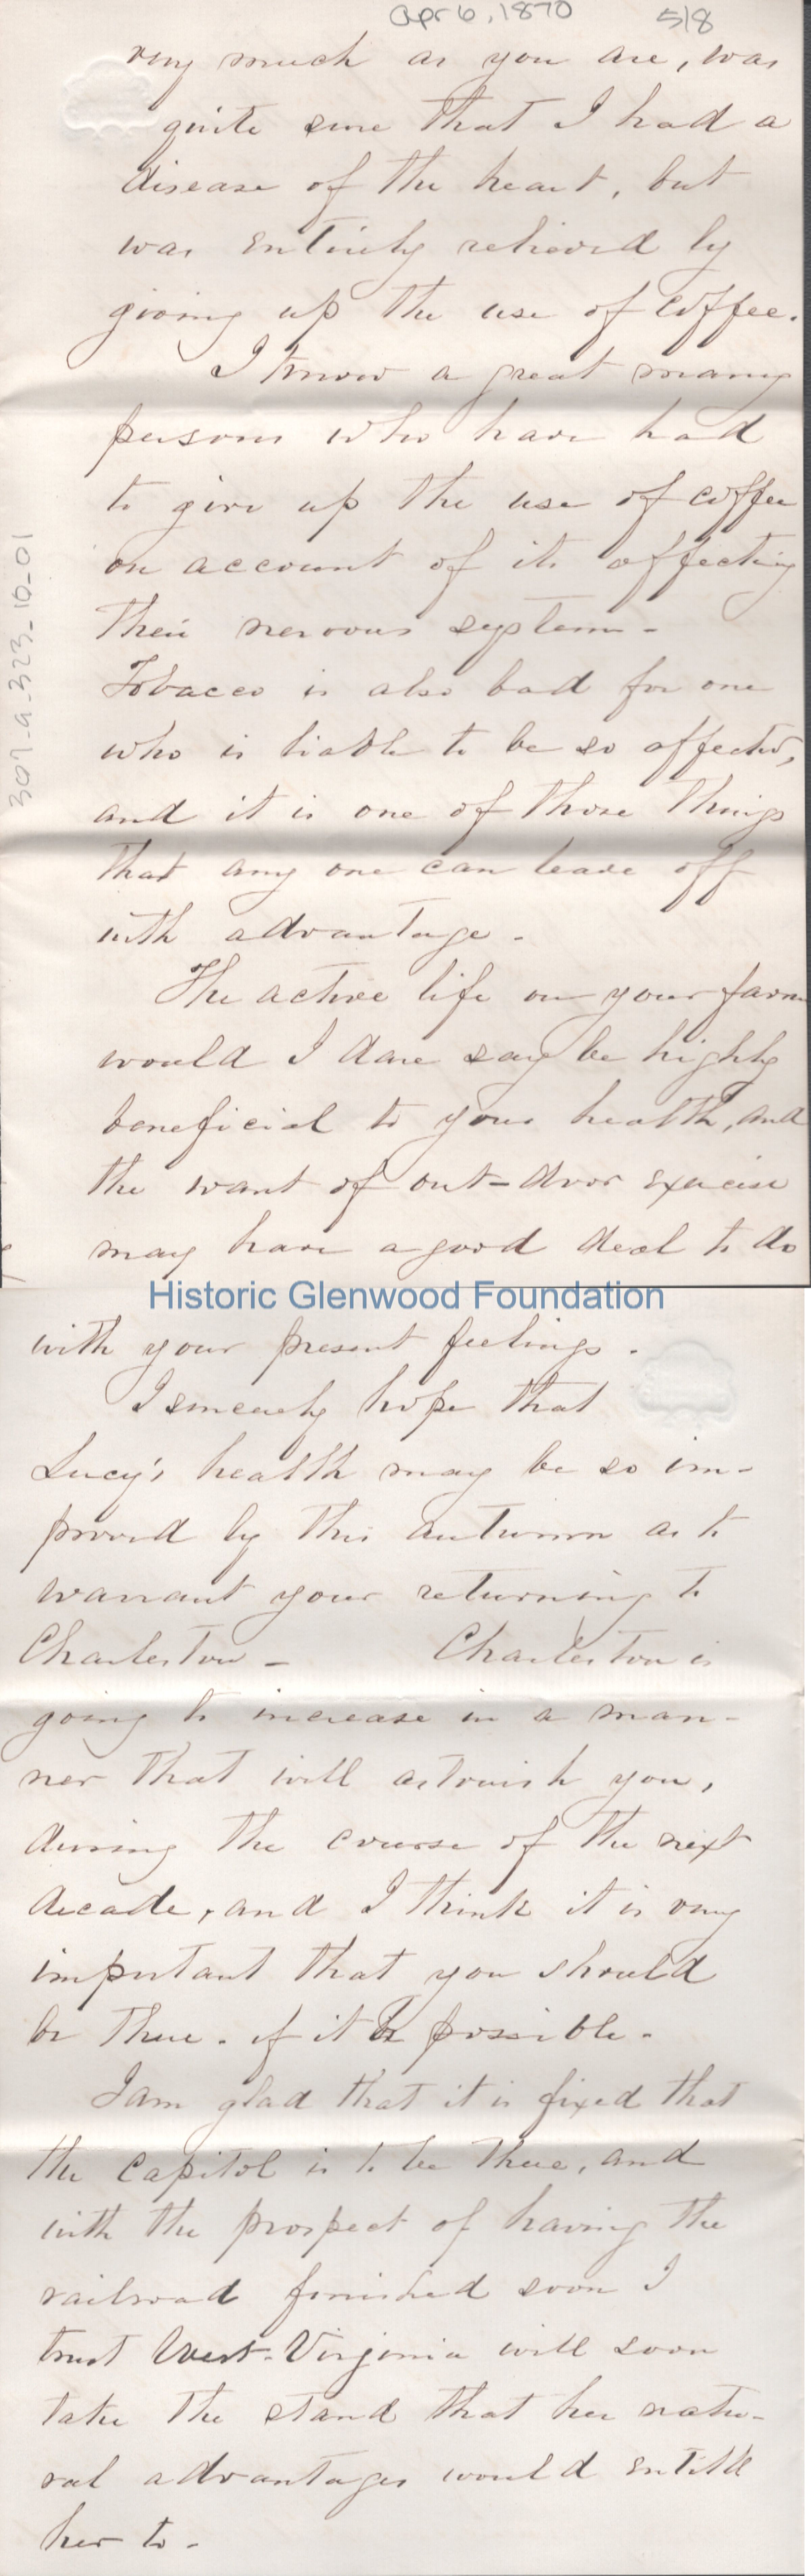 Apr 6, 1870 5/8
very much as you are, was
quite sure that I had a
disease of the heart, but
was entirely relieved by
giving up the use of coffee.
I know a great many
persons who have had
to give up the use of coffee
on account of its affecting
their nervous system -
Tobacco is also bad for one
who is liable to be so affected,
and it is one of those things
that any one can leave off
with advantage -
The active life on your farm
would I dare say be highly
beneficial to your health, and
the want of out-door exercise
may have a good deal to do
307-a-323-10-01
Historic Glenwood Foundation
with your present feelings.
I sincerely hope that
Lucy's health may be so im-
proved by this autumn as to
warrant your returning to
Charleston - Charleston is
going to increase in a man-
ner that will astonish you,
during the course of the next
decade, and I think it is very
important that you should
be there - if it be possible -
I am glad that it is fixed that
the Capitol is to be there, and
with the prospect of having the
railroad finished soon I
trust West-Virginia will soon
take the stand that her natu-
ral advantages would entitle
her to -